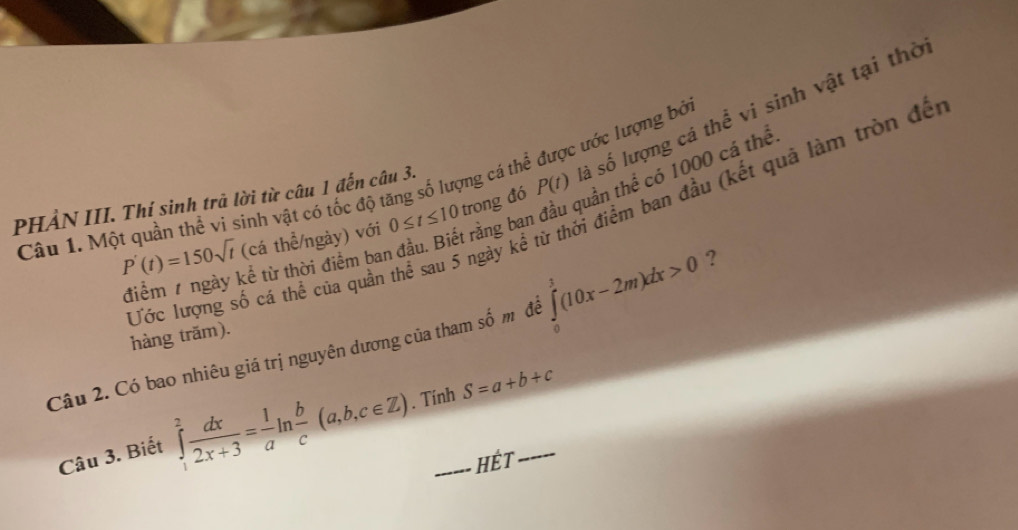 PHẦN III. Thí sinh trả lời từ câu 1 đến câu 3.
Câu 1. Một quần thể vi sinh vật có tốc độ tăng số lượng cá thể được ước lượng bởi
P'(t) = 150√t (cá thể/ngày) với 0 ≤ t ≤ 10 trong đó P(t) là số lượng cá thể vi sinh vật tại thời
điểm t ngày kể từ thời điểm ban đầu. Biết rằng ban đầu quần thể có 1000 cá thể.
Ước lượng số cá thể của quần thể sau 5 ngày kể từ thời điểm ban đầu (kết quả làm tròn đến
hàng trăm).
Câu 2. Có bao nhiêu giá trị nguyên dương của tham số m để ∫₀³(10x − 2m)dx > 0 ?
Câu 3. Biết ∫₁² dx/(2x+3) = 1/a ln b/c (a,b,c ∈ ℤ). Tính S = a + b + c
------ HẾT ------